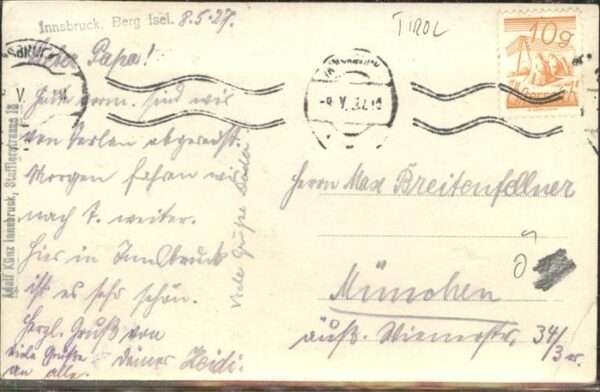 Innsbruck, Berg Isel. 8.5.27.
TIROL
10g
Lieber Papa!
Heute vorm. sind wir
von Serlen abgereist.
Morgen fahren wir
nach S. weiter.
Hier in Innsbruck
ist es sehr schön.
Herzl. Gruß von
Deiner Heidi.
Viele Grüße
an alle.
Viele Grüße
Adolf Künz Innsbruck, Stafflerstrasse 18
Herrn Max Breitenfellner
München
äuß. Wienerstr. 34/
3 r.